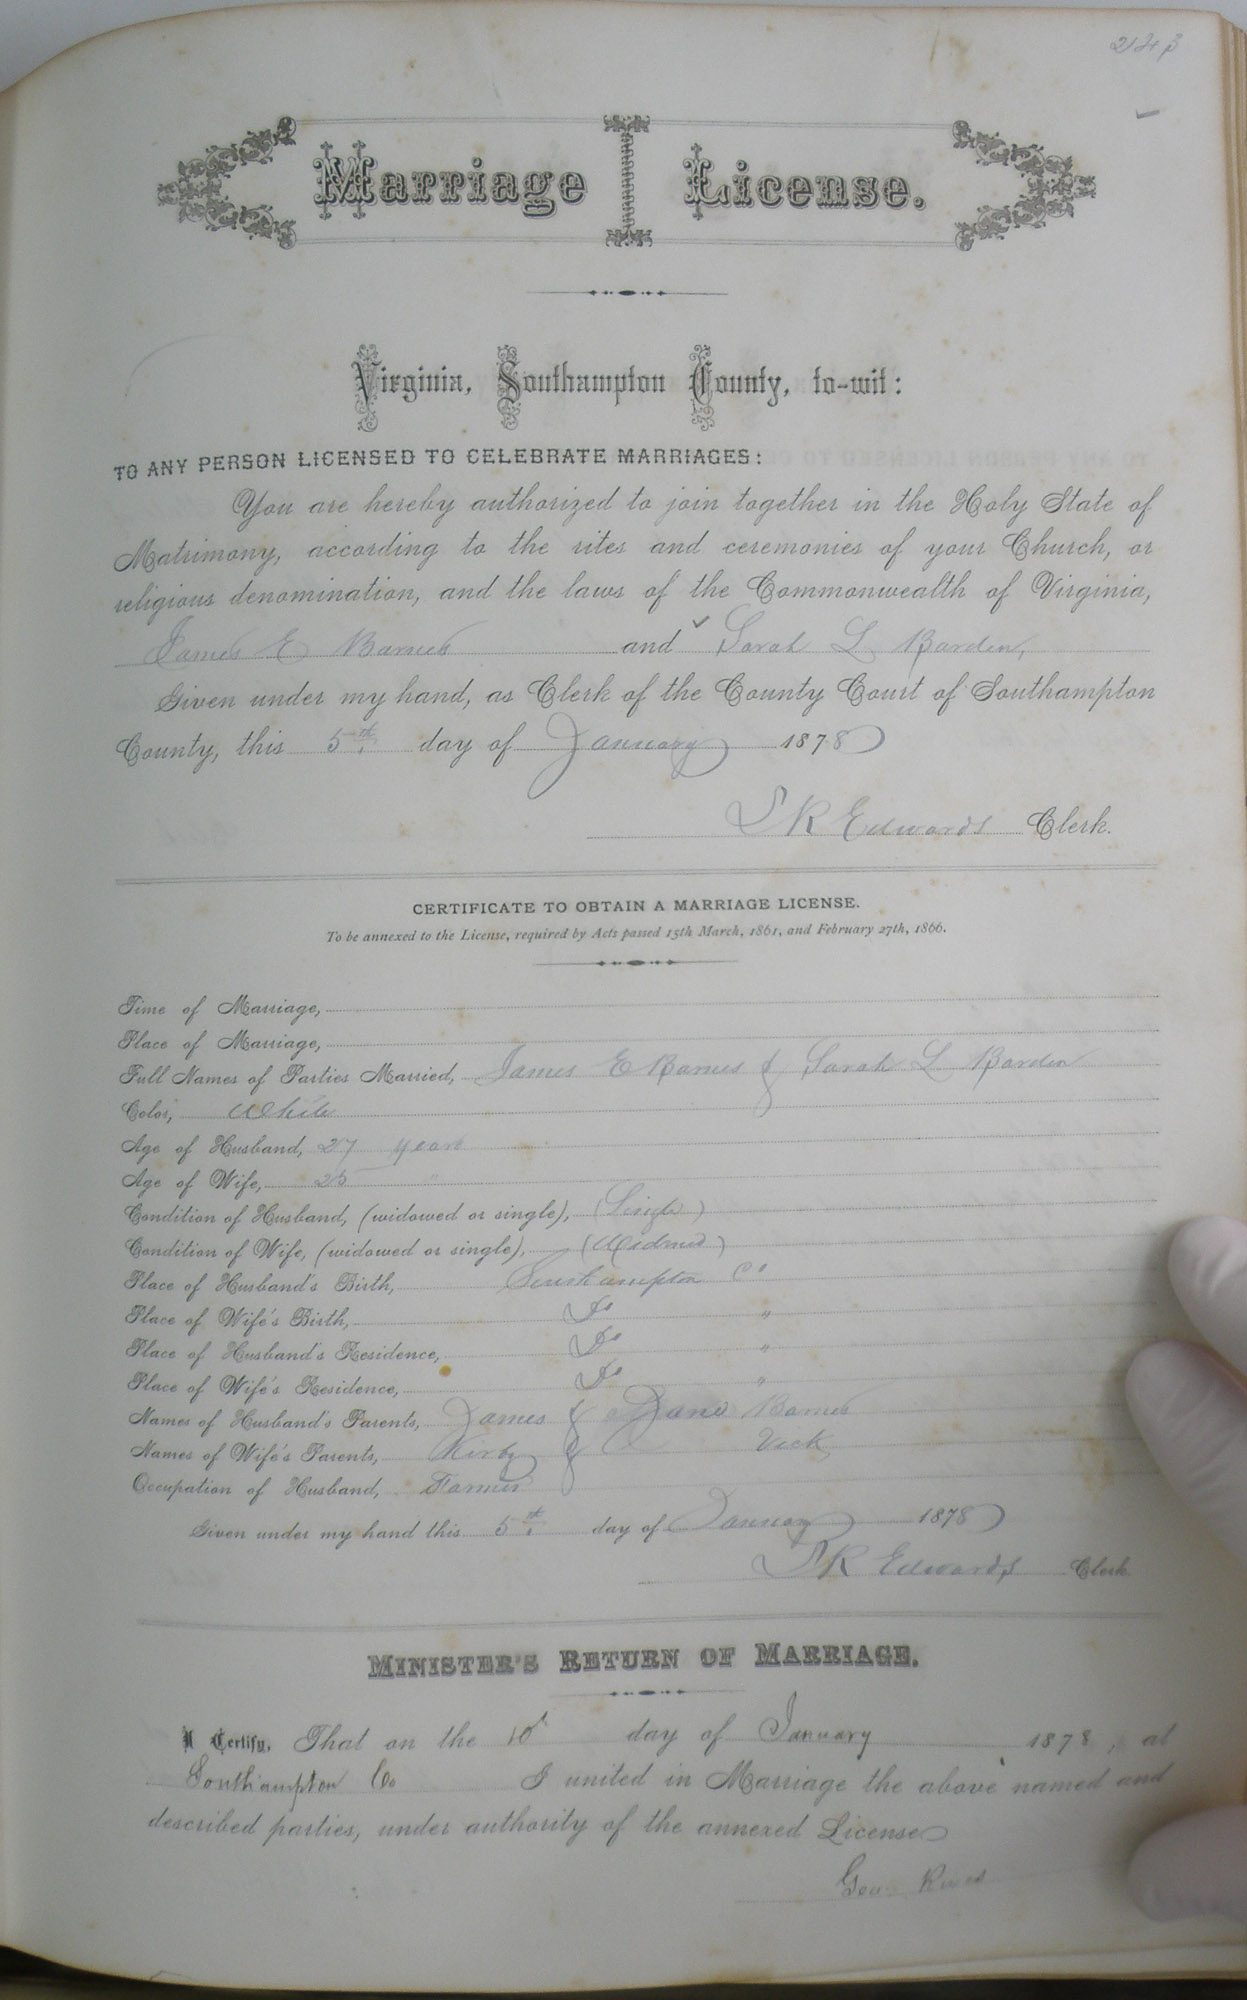 243
Marriage License.
Virginia, Southampton County, to-wit:
TO ANY PERSON LICENSED TO CELEBRATE MARRIAGES:
You are hereby authorized to join together in the Holy State of
Matrimony, according to the rites and ceremonies of your Church, or
religious denomination, and the laws of the Commonwealth of Virginia,
James E Barnes and Sarah L Barden,
Given under my hand, as Clerk of the County Court of Southampton
County, this 5th day of January 1878
L R Edwards Clerk.
CERTIFICATE TO OBTAIN A MARRIAGE LICENSE.
To be annexed to the License, required by Acts passed 15th March, 1861, and February 27th, 1866.
Time of Marriage,
Place of Marriage,
Full Names of Parties Married, James E Barnes & Sarah L Barden
Color, White
Age of Husband, 27 years
Age of Wife, 25 "
Condition of Husband, (widowed or single), (Single)
Condition of Wife, (widowed or single), (Widowed)
Place of Husband's Birth, Southampton Co
Place of Wife's Birth, Do "
Place of Husband's Residence, Do "
Place of Wife's Residence, Do "
Names of Husband's Parents, James & Jane Barnes
Names of Wife's Parents, Kirby & Vick
Occupation of Husband, Farmer
Given under my hand this 5th day of January 1878
L R Edwards Clerk
MINISTER'S RETURN OF MARRIAGE.
I Certify, That on the 10th day of January 1878, at
Southampton Co I united in Marriage the above named and
described parties, under authority of the annexed License
Geo.